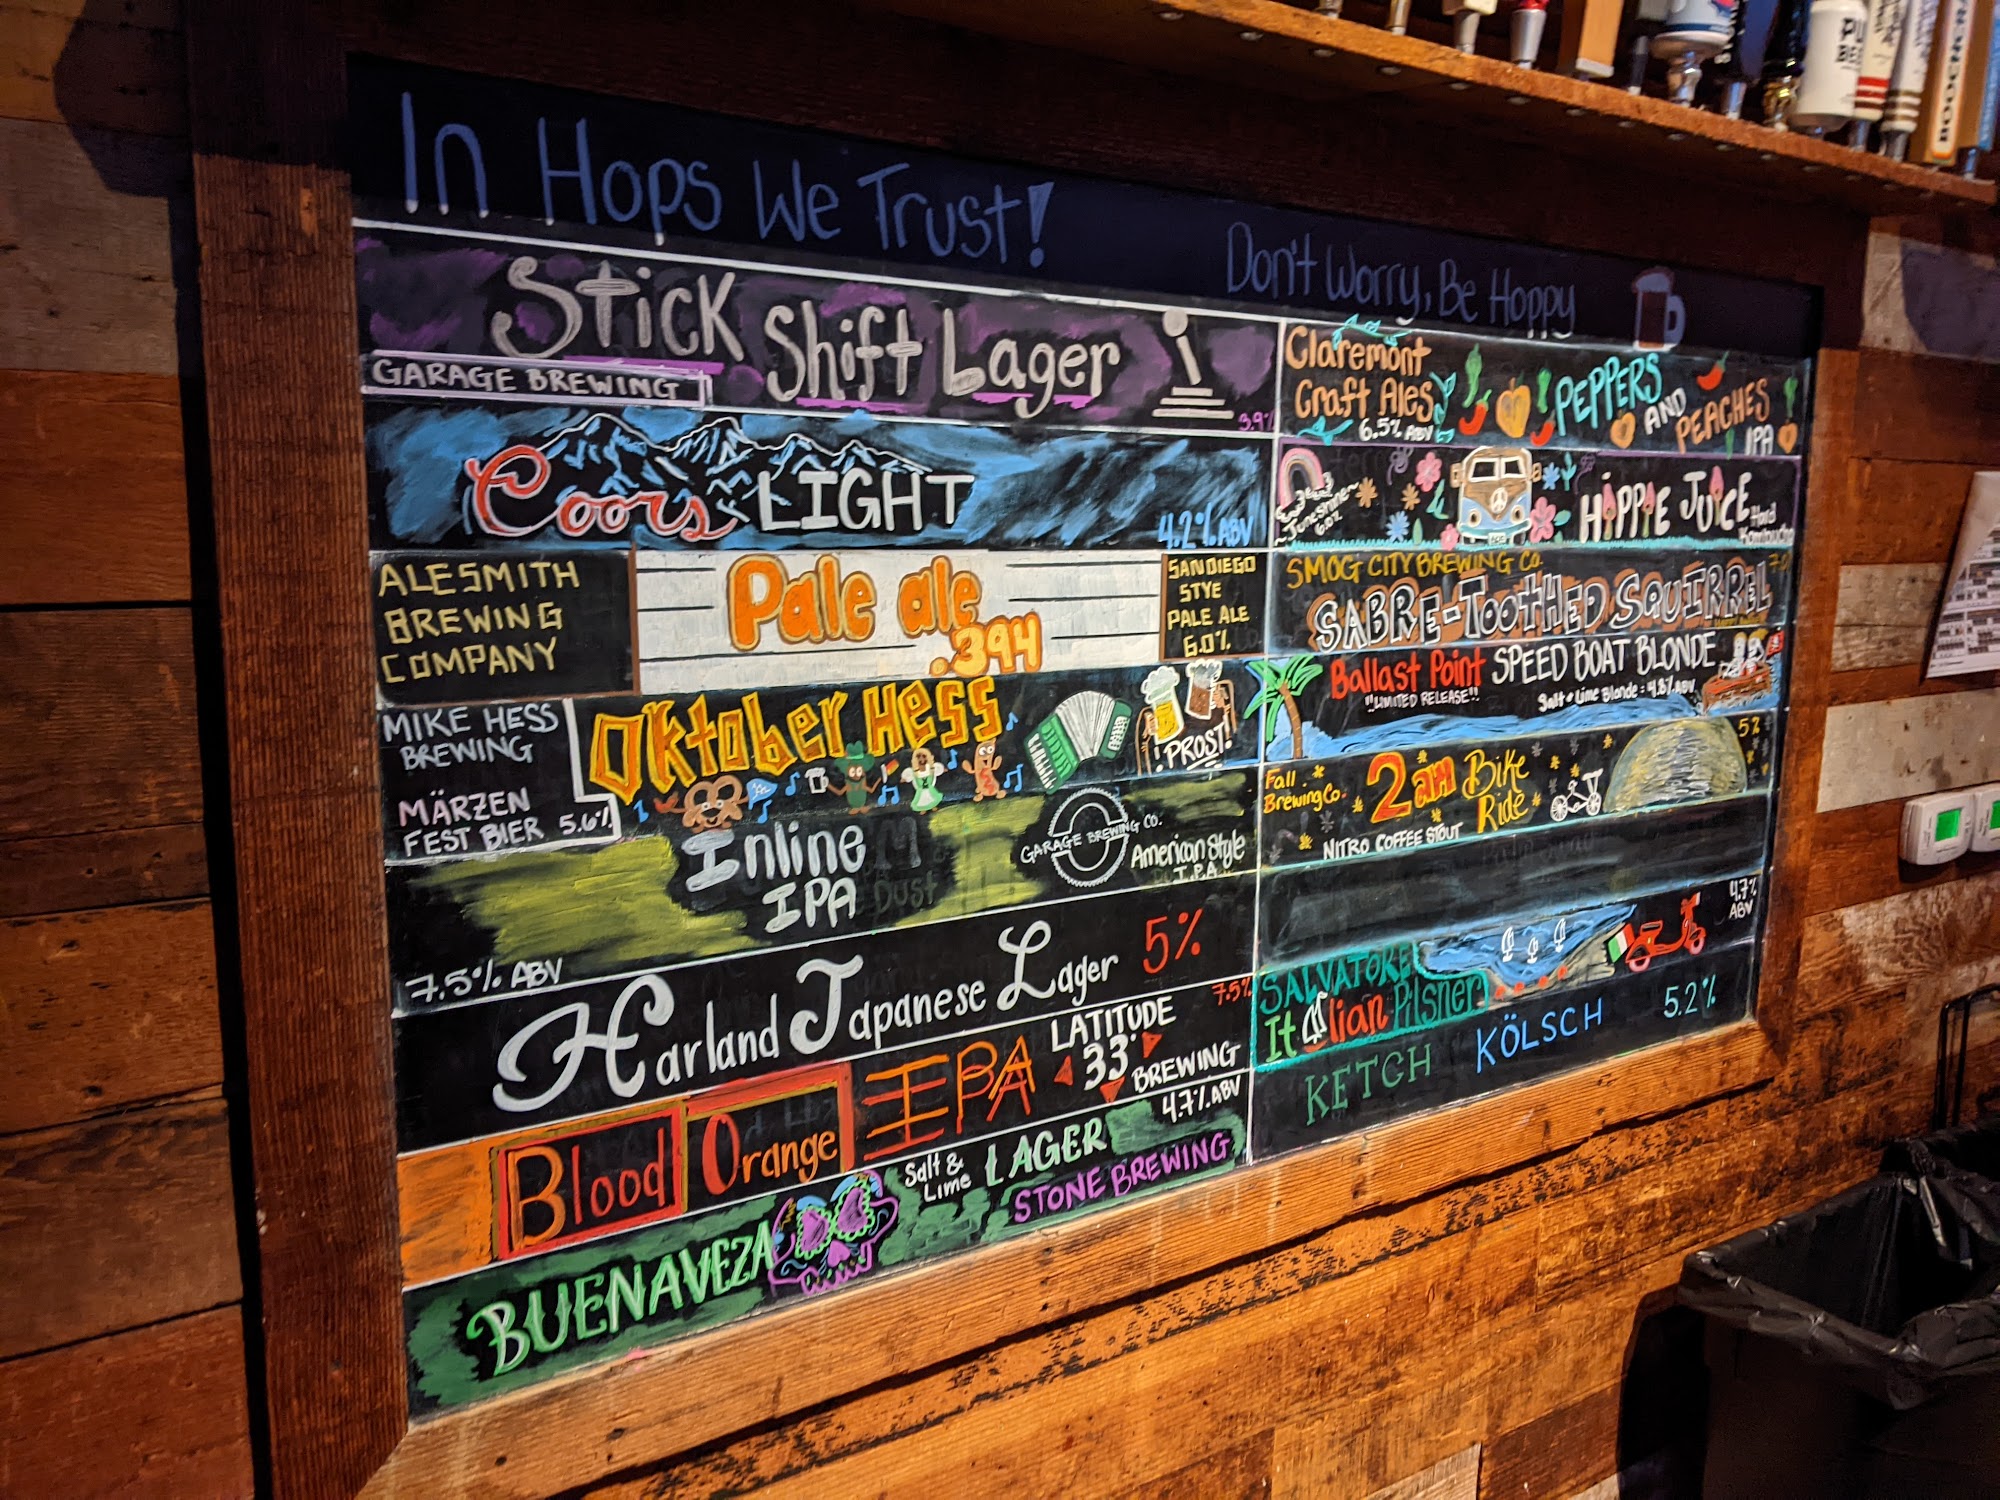 In Hops We Trust!
Don't Worry, Be Hoppy
Stick Shift Lager
GARAGE BREWING
3.9%
Coors LIGHT
4.2% ABV
ALESMITH
BREWING
COMPANY
Pale ale
.394
SANDIEGO
STYE
PALE ALE
6.0%
MIKE HESS
BREWING
MÄRZEN
FEST BIER 5.6%
Oktober Hess
! PROST!
Inline
IPA
DUST
GARAGE BREWING CO.
American Style
I.P.A
7.5% ABV
Harland Japanese Lager 5%
Blood Orange IPA
LATITUDE
33°
BREWING
7.5%
BUENAVEZA
Salt &
Lime
LAGER
4.7% ABV
STONE BREWING
Claremont
Craft Ales
6.5% ABV
PEPPERS
AND
PEACHES
IPA
JuneShine
6.0%
HIPPIE JUICE
Hard
Kombucha
SMOG CITY BREWING CO.
7.0
SABRE-TOOTHED SQUIRREL
Ballast Point SPEED BOAT BLONDE
"LIMITED RELEASE"
Salt & Lime Blonde: 4.8% ABV
Fall
Brewing Co.
2am Bike
Ride
5%
NITRO COFFEE STOUT
SALVATORE
Italian Pilsner
4.7%
ABV
KETCH KÖLSCH 5.2%
BOOCHCRA